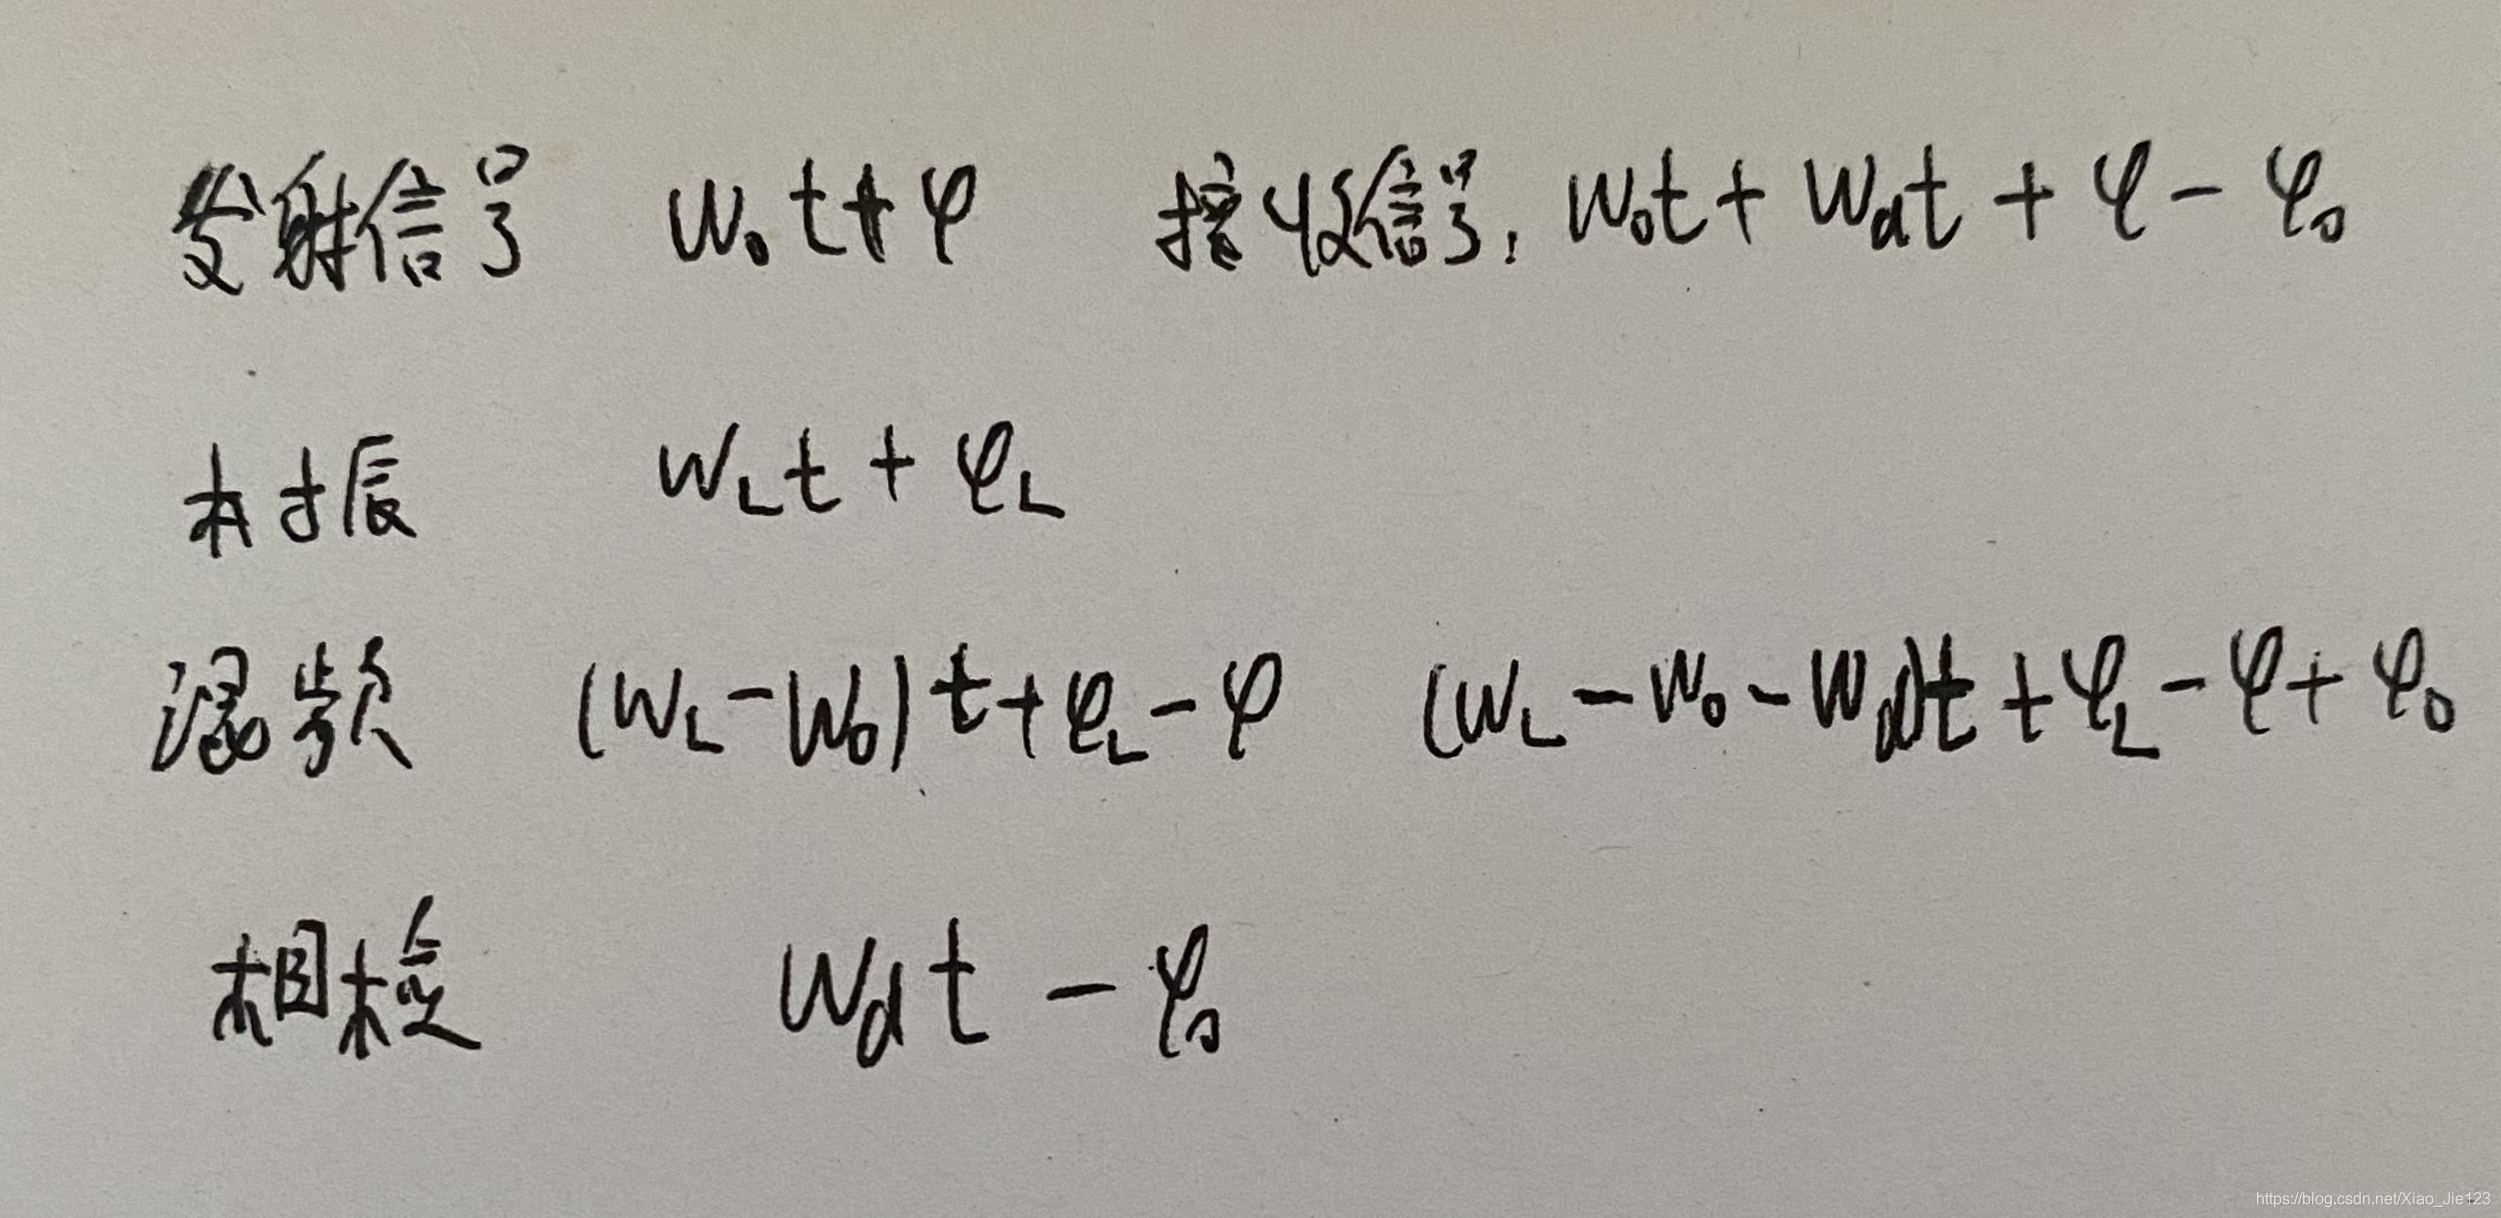 发射信号 W₀t+φ 接收信号: W₀t+W_dt+φ-φ₀
本振 W_Lt+φ_L
混频 (W_L-W₀)t+φ_L-φ (W_L-W₀-W_d)t+φ_L-φ+φ₀
相检 W_dt-φ₀
https://blog.csdn.net/Xiao_Jie123